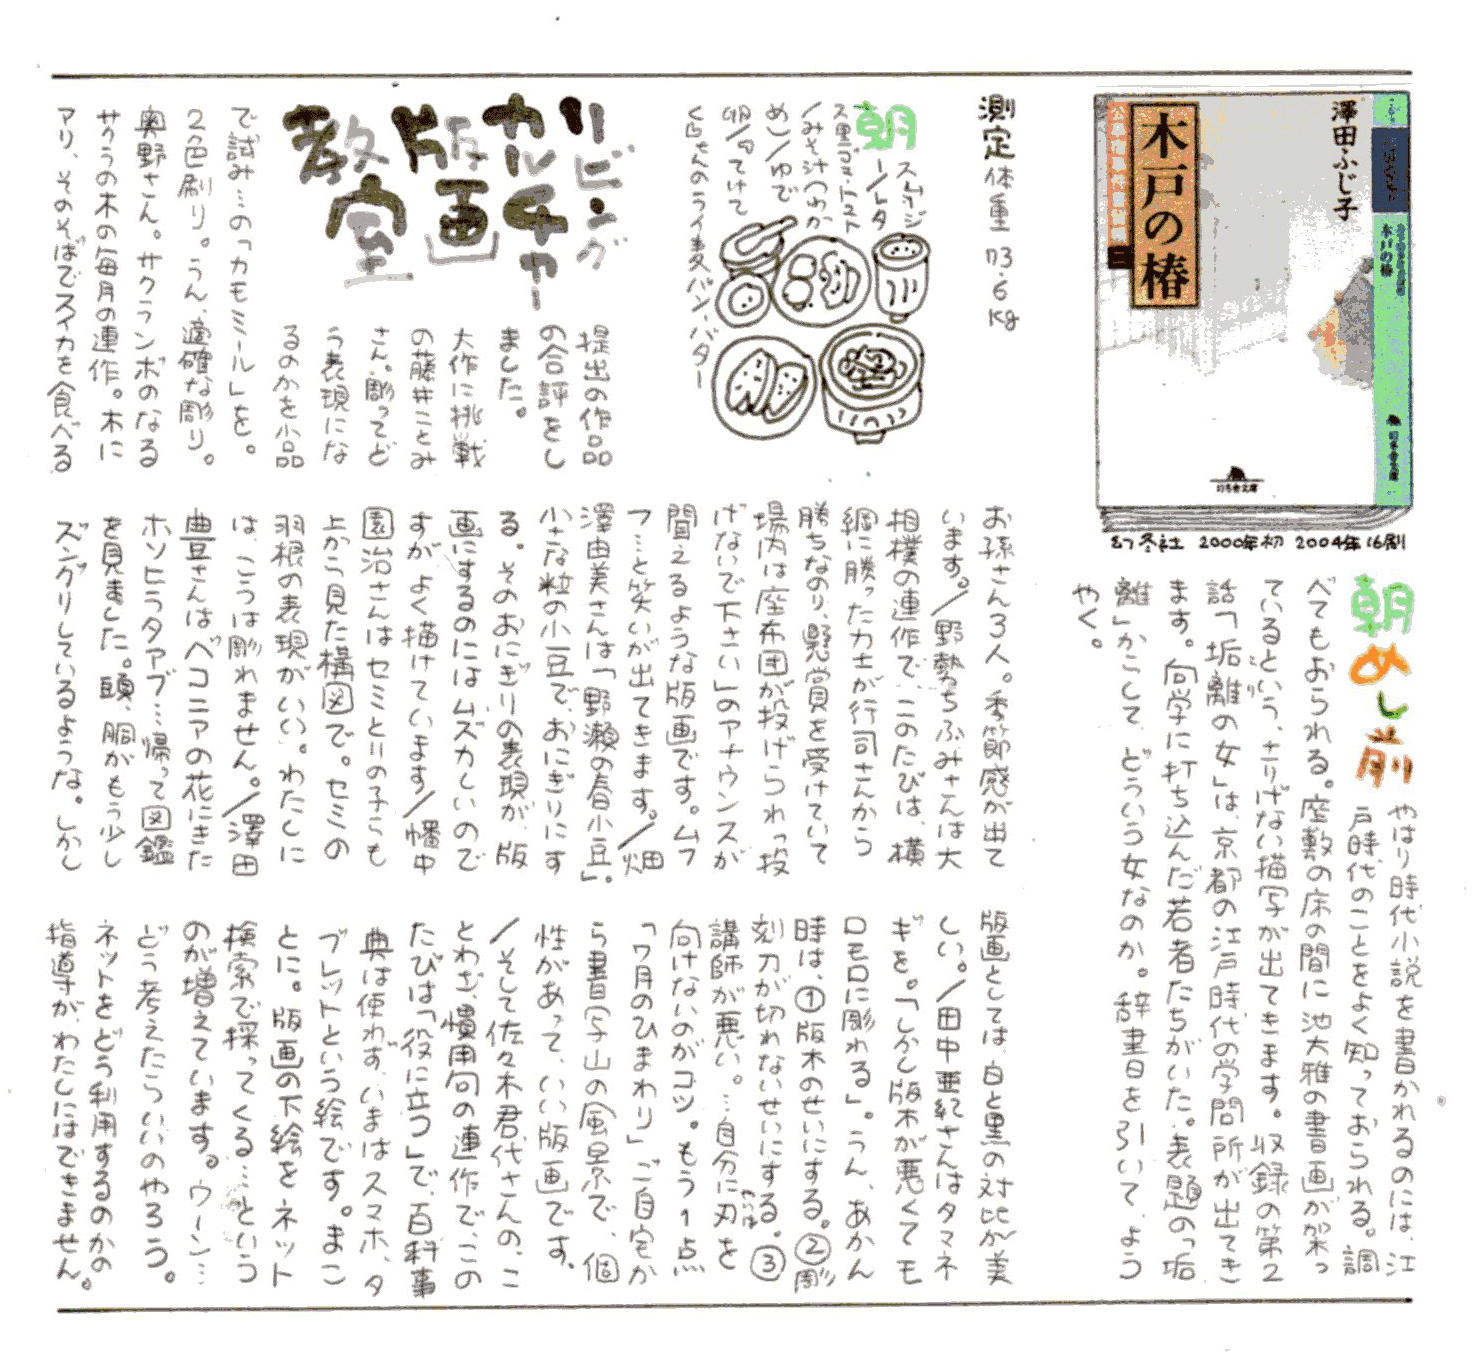 澤田ふじ子
木戸の椿
公事宿事件書留帳
二
木戸の椿
幻冬舎文庫
幻冬舎文庫
幻冬社 2000年初 2004年16刷
朝めし前
やはり時代小説を書かれるのには、江
戸時代のことをよく知っておられる。調
べてもおられる。座敷の床の間に池大雅の書画が架っ
ているという、さりげない描写が出てきます。収録の第2
話「垢離の女」は、京都の江戸時代の学問所が出てき
こり
ます。向学に打ち込んだ若者たちがいた。表題の「垢
離」かこして、どういう女なのか。辞書を引いて、よう
やく。
測定体重 73.6kg
朝
スムージ
ー/レタ
ス黒ゴマ・トマト
/みそ汁(わか
め)/ゆで
卵/
くるみのライ麦パン、バター
リビング
カルチャー
版画
教室
提出の作品
の合評をし
ました。
大作に挑戦
の藤井ことみ
さん。彫ってど
う表現にな
るのかを小品
で試み…の「カモミール」を。
2色刷り。うん、適確な彫り。
奥野さん。サクランボのなる
サクラの木の毎月の連作。木に
アリ、そのそばでスイカを食べる
お孫さん3人。季節感が出て
います。/野勢ちふみさんは大
相撲の連作で、このたびは、横
綱に勝った力士が行司さんから
勝ちなのり、懸賞を受けていて
場内は座布団が投げられ「投
げないで下さい」のアナウンスが
聞えるような版画です。ムフ
フ…と笑いが出てきます。/畑
澤由美さんは「野瀬の春小豆」。
小さな粒の小豆で、おにぎりにす
る。そのおにぎりの表現が、版
画にするのにはムズカしいので
すが、よく描けています/幡中
園治さんはセミとりの子らも
上から見た構図で。セミの
羽根の表現がいい。わたしに
は、こうは彫れません。/澤田
豊さんはベコニアの花にきた
ホソヒラタアブ…帰って図鑑
を見ました。頭、胴がもう少し
ズングリしているような。しかし
版画としては、白と黒の対比が美
しい。/田中亜紀さんはタマネ
ギを。「しかし版木が悪くてモ
ロモロに彫れる」。うん、あかん
時は、①版木のせいにする。②彫
刻刀が切れないせいにする。③
講師が悪い。…自分に刃を
やいば
向けないのがコツ。もう1点
「7月のひまわり」ご自宅か
ら書写山の風景で、個
性があって、いい版画です。
/そして佐々木君代さんの、こ
とわざ、慣用句の連作で、この
たびは「役に立つ」で、百科事
典は使わず、いまはスマホ、タ
ブレットという絵です。まこ
とに。版画の下絵をネット
検索で採ってくる…という
のが増えています。ウーン…
どう考えたらいいのやろう。
ネットをどう利用するのかの
指導が、わたしにはできません。